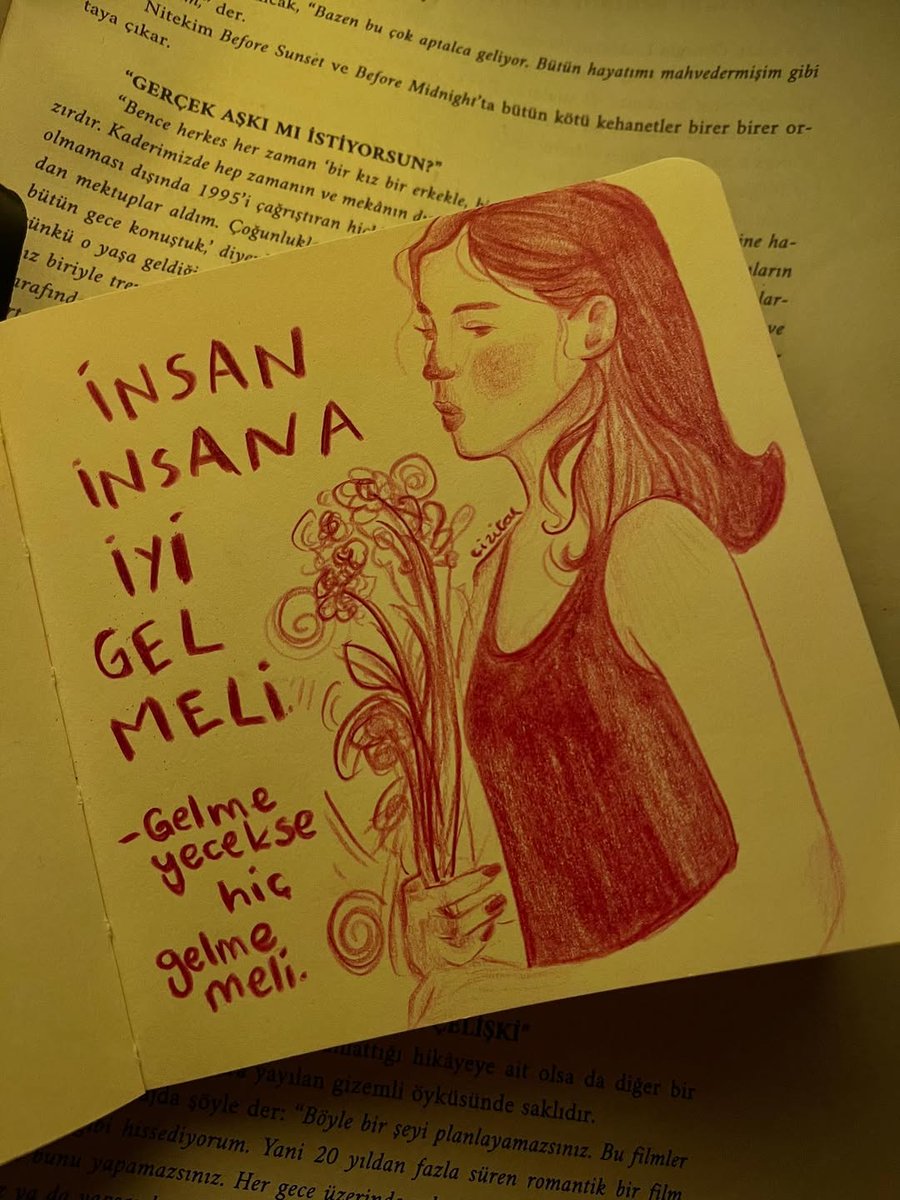 der.
"Bazen bu çok aptalca geliyor. Bütün hayatımı mahvedermişim gibi
Nitekim Before Sunset ve Before Midnight'ta bütün kötü kehanetler birer birer or-
taya çıkar.
"GERÇEK AŞKI MI İSTİYORSUN?"
"Bence herkes her zaman 'bir kız bir erkekle,
zırdır. Kaderimizde hep zamanın ve mekânın
olmaması dışında 1995'i çağrıştıran
dan mektuplar aldım.
bütün gece konuştuk,'
o yaşa
biriyle
İNSAN
İNSANA
İYİ
GEL
MELİ
-Gelme
yecekse
hiç
gelme
meli.
hikâyeye ait olsa da diğer bir
yayılan gizemli öyküsünde saklıdır.
şöyle der: "Böyle bir şeyi planlayamazsınız. Bu filmler
hissediyorum. Yani 20 yıldan fazla süren romantik bir film
bunu yapamazsınız. Her gece